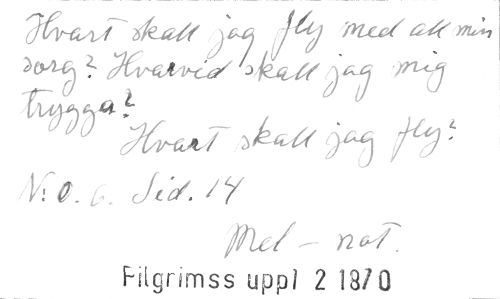 Hvart skall jag fly med all min
sorg? Hvarvid skall jag mig
trygga?
Hvart skall jag fly?
N:o. 6. Sid. 14
Mel-not.
Pilgrimss uppl 2 1870